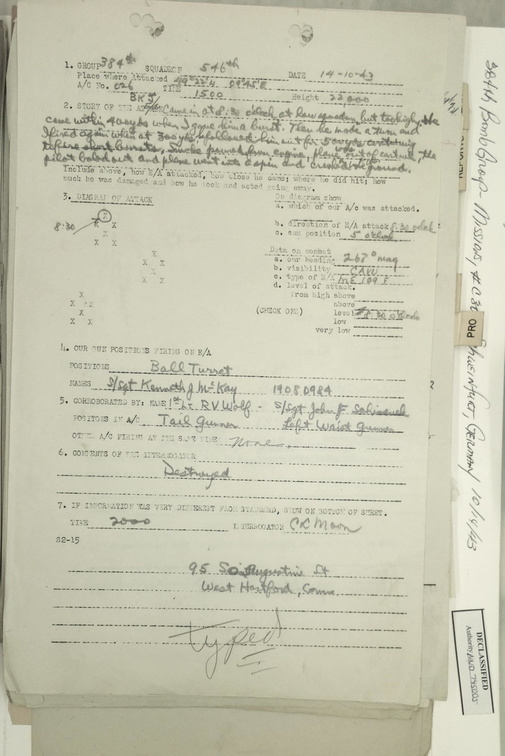 1. GROUP 384th SQUADRON 546th DATE 14-10-43
Place where Attacked 0945E
A/C No. 026 TIME 1500 Height 22000
BK5
2. STORY OF THE came in at 8:30 o'clock at low squadron but too high, He
came within 400 yds when I gave him a burst. Then he made a turn and
I fired again when at 300 yds. He followed him out for 50 yds continuing
to fire short bursts, smoke poured from engine, plane was out of control, the
pilot bailed out and plane went into a spin and crashed to ground.
Include above, how E/A attacked, how close he came; where he did hit; how
much he was damaged and how he look and acted going away.
3. DIAGRAM OF ATTACK On diagram show
a. which of our A/c was attacked.
8:30
b. direction of E/A attack 8:30 o'clock
c. sun position 5 o'clock
Data on combat
a. our heading 267° mag
b. visibility CAVU
c. type of E/A ME 109 F
d. level of attack.
from high above
above
(CHECK ONE) level 8:30 o'clock
low
very low
4. OUR GUN POSITIONS FIRING ON E/A
POSITIONS Ball Turret
NAMES S/Sgt Kenneth J McKay 19080924
5. CORROBORATED BY: NAME 1st Lt. R V Wolf - S/Sgt John F.
POSITIONS IN A/C Tail Gunner Left Waist Gunner
OTHER A/C FIRING AT THE SAME TIME None.
6. COMMENTS OF THE INTERROGATOR
Destroyed
7. IF INFORMATION WAS VERY DIFFERENT FROM STANDARD, SHOW ON BOTTOM OF SHEET.
TIME 2000 INTERROGATOR CK Moon
S2-15
95 So Augustine St
West Hartford, Conn.
typed
384th Bomb Group - Mission, Schweinfurt, Germany 10/14/43
PRO
DECLASSIFIED
Authority NND